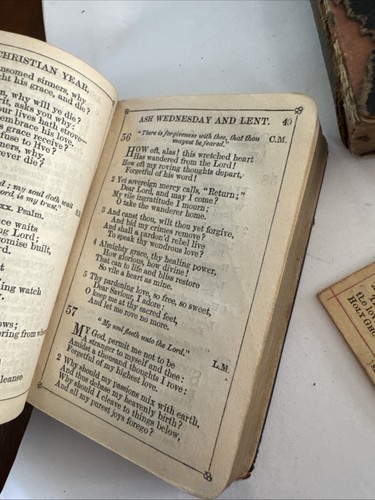 CHRISTIAN YEAR.
ansomed sinners, why
ht his grace, and die?
n, why will ye die?
rit, asks you why:
our lives hath
embrace his love.
s grace receive?
fuse to live?
nners, why,
ever die?
d; my soul doth wait
word, is my trust."
xx. Psalm.
ce waits
ng Lord;
romise built,
rd.
t
ing watch
ows;
pring from
Cleanse
ASH WEDNESDAY AND LENT. 49
56 "There is forgiveness with thee, that thou C.M.
mayest be feared."
HOW oft, alas! this wretched heart
Has wandered from the Lord!
How oft my roving thoughts depart,
Forgetful of his word!
2 Yet sovereign mercy calls, "Return;"
Dear Lord, and may I come?
My vile ingratitude I mourn;
O take the wanderer home.
3 And canst thou, wilt thou yet forgive,
And bid my crimes remove?
And shall a pardon'd rebel live
To speak thy wondrous love?
4 Almighty grace, thy healing power,
How glorious, how divine!
That can to life and bliss restore
So vile a heart as mine.
5 Thy pardoning love, so free, so sweet,
Dear Saviour, I adore;
O keep me at thy sacred feet,
And let me rove no more.
57 "My soul fleeth unto the Lord." L.M.
MY God, permit me not to be
A stranger to myself and thee:
Amidst a thousand thoughts I rove;
Forgetful of my highest love.
2 Why should my passions mix with earth,
And thus debase my heavenly birth?
Why should I cleave to things below,
And all my purest joys forego?
HOLY